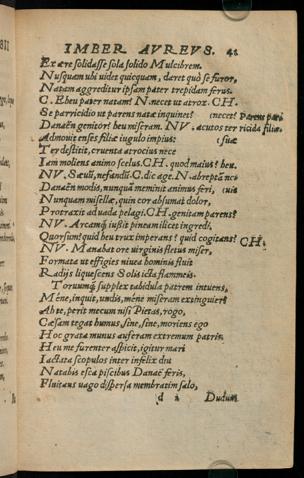 IMBER AVREVS. 41
Ex ære solidasse sola solido Mulcibrem.
Nusquam ubi uidet quicquam, daret quo se furor,
Natam aggreditur ipsam pater trepidam ferus.
C. Eheu pater natam? N. necet ut atrox. CH.
Se parricidio ut parens natæ inquinet? (necet? Parens pari
Danaën genitor? heu miseram. NV. acutos ter ricida filiæ.
Admouit enses filiæ iugulo impius: (filiæ
Ter destitit, cruenta atrocis nece
Iam moliens animo scelus. CH. quod maius? heu.
NV. Sæuū, nefandū. C. dic age. N. abreptā
Danaën modis, nunquā meminit animus feri, (uis
Nunquam misellæ, quin cor absumat dolor,
Protraxit ad uada pelagi. CH. genitam parens?
NV. Arcamq́; iußit pineam ilicet ingredi,
Quorsum? quid heu trux imperans? quid cogitans? CH.
NV. Manabat ore uirginis fletus miser,
Formata ut effigies niuea hominis fluit
Radijs liquescens Solis icta flammeis.
Toruumq́; supplex tabidula patrem intuens,
Méne, inquit, undis, méne miseram extinguier?
Ah te, perit mecum nisi Pietas, rogo,
Cæsam tegat humus, sine, sine, moriens ego
Hoc grata munus auferam extremum patris.
Heu me furenter aspicit, igitur mari
Iactata scopulos inter infelix diu
Natabis esca piscibus Danaë feris,
Fluitans uago dispersa membratim salo,
d i Dudum